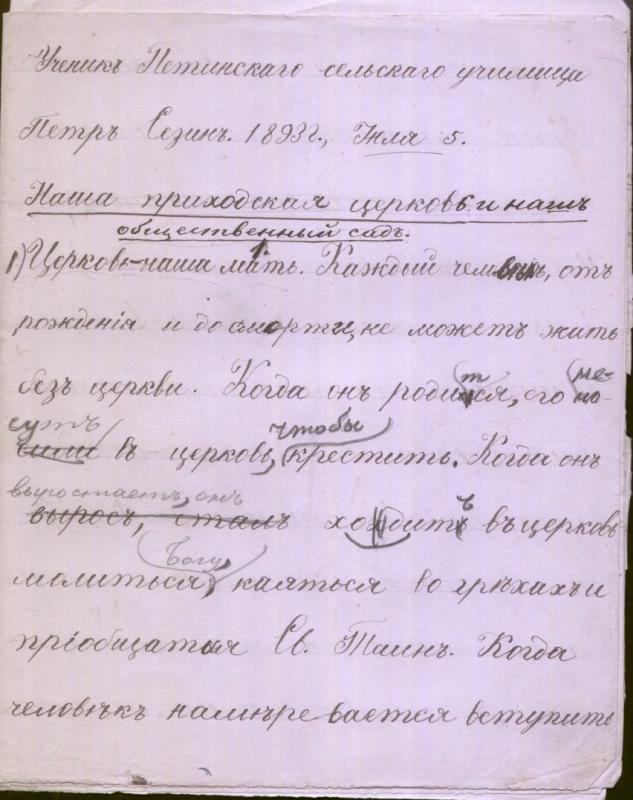 Ученикъ Петинскаго сельскаго училища
Петръ Сезинъ. 1893г., Іюля 5.
Наша приходская церковь и нашъ
общественный садъ.
1.
1) Церковь-наша мать. Каждый человѣкъ, отъ
рожденія и до смерти, не можетъ жить
безъ церкви. Когда онъ родится, его не-
сутъ въ церковь, чтобы крестить. Когда онъ
выростаетъ, онъ
выросъ, сталъ ходитъ въ церковь
Богу,
молиться, каяться во грѣхахъ и
пріобщаться Св. Таинъ. Когда
человѣкъ намѣревается вступить